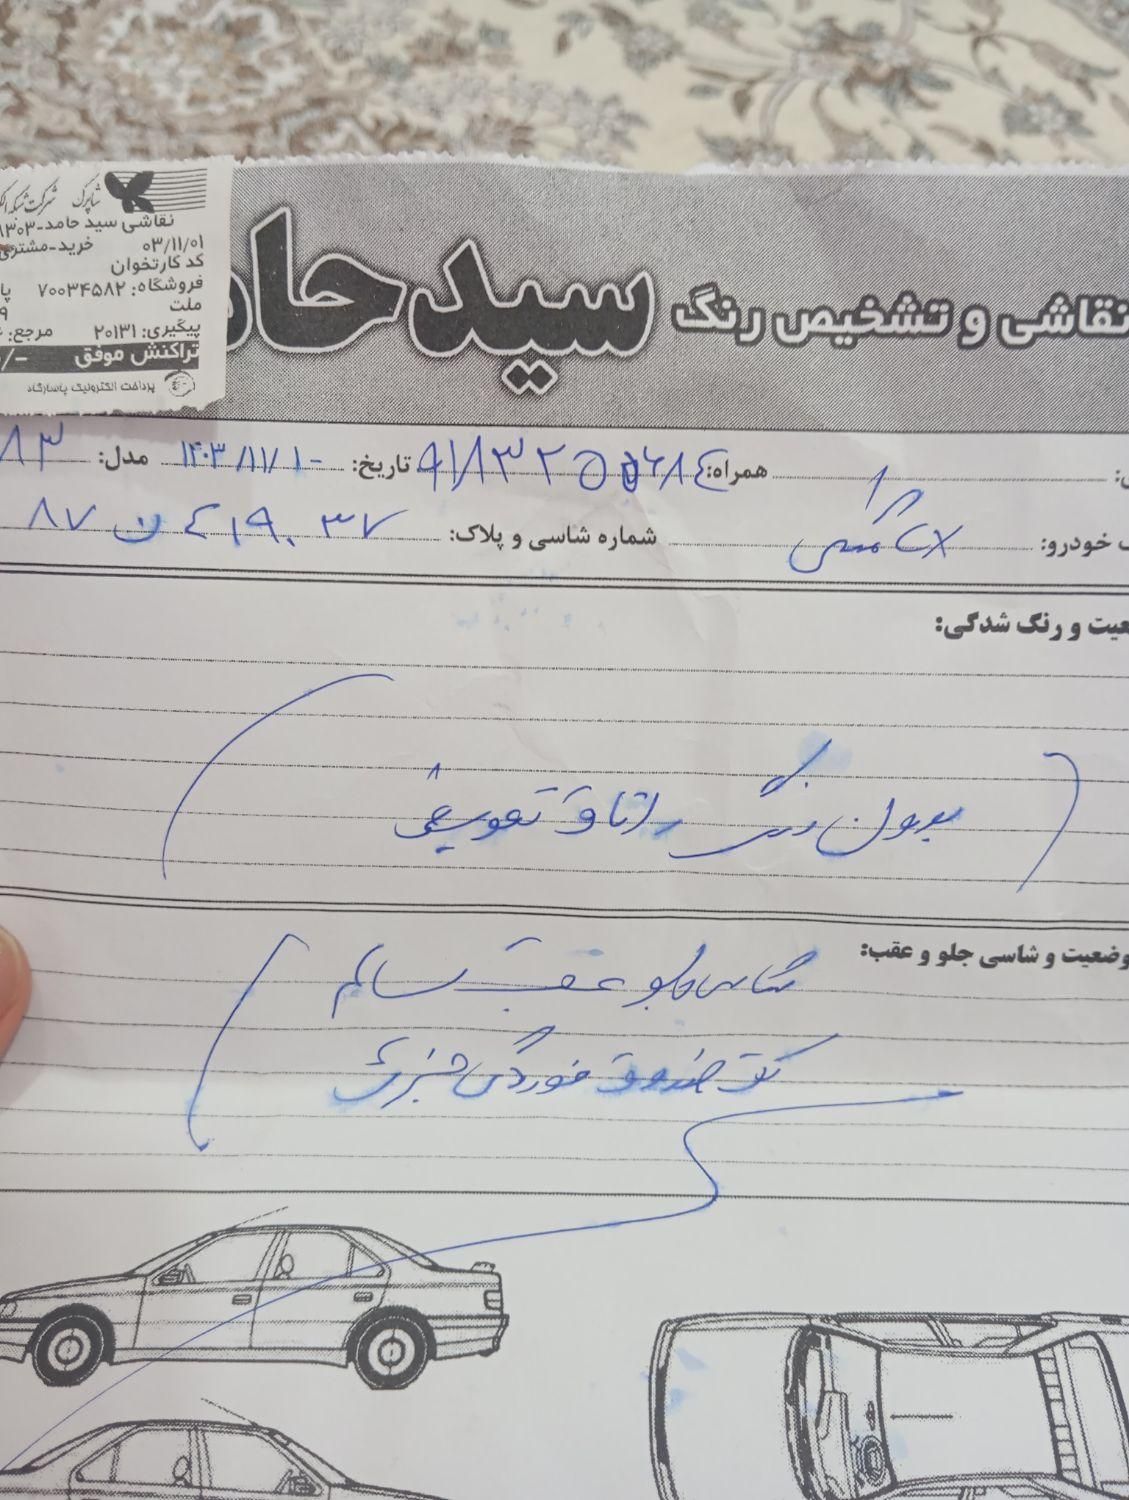 شاپرک شرکت شبکه الک
نقاشی سید حامد-۹۳۰۳
۰۳/۱۱/۰۱ خرید-مشتری
کد کارتخوان
فروشگاه: ۷۰۰۳۴۵۸۲ پا
ملت ۹
پیگیری: ۲۰۱۳۱ مرجع:
تراکنش موفق
پرداخت الکترونیک پاسارگاد
نقاشی و تشخیص رنگ سید حاه
همراه: تاریخ: ۱۴۰۳/۱۱/۱۰ مدل: ۸۳
خودرو: شماره شاسی و پلاک: ۳۷
عیت و رنگ شدگی:
بدون رنگ اتاق تعویض
وضعیت و شاسی جلو و عقب:
شاسی جلو عقب سالم
کف صندوق خوردگی جزئی